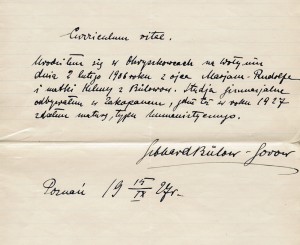 Curriculum vitae.
Urodziłem się w Obryskowcach na Wołyniu
dnia 2 lutego 1906 roku z ojca Marjana-Rudolfa
i matki Heleny z Bülowów. Studja gimnazjalne
odbywałem w Zakopanem, gdzie też w roku 1927
zdałem maturę typu humanistycznego.
Gebhard Bülow-Gorow
Poznań 19 15/IX 27 r.